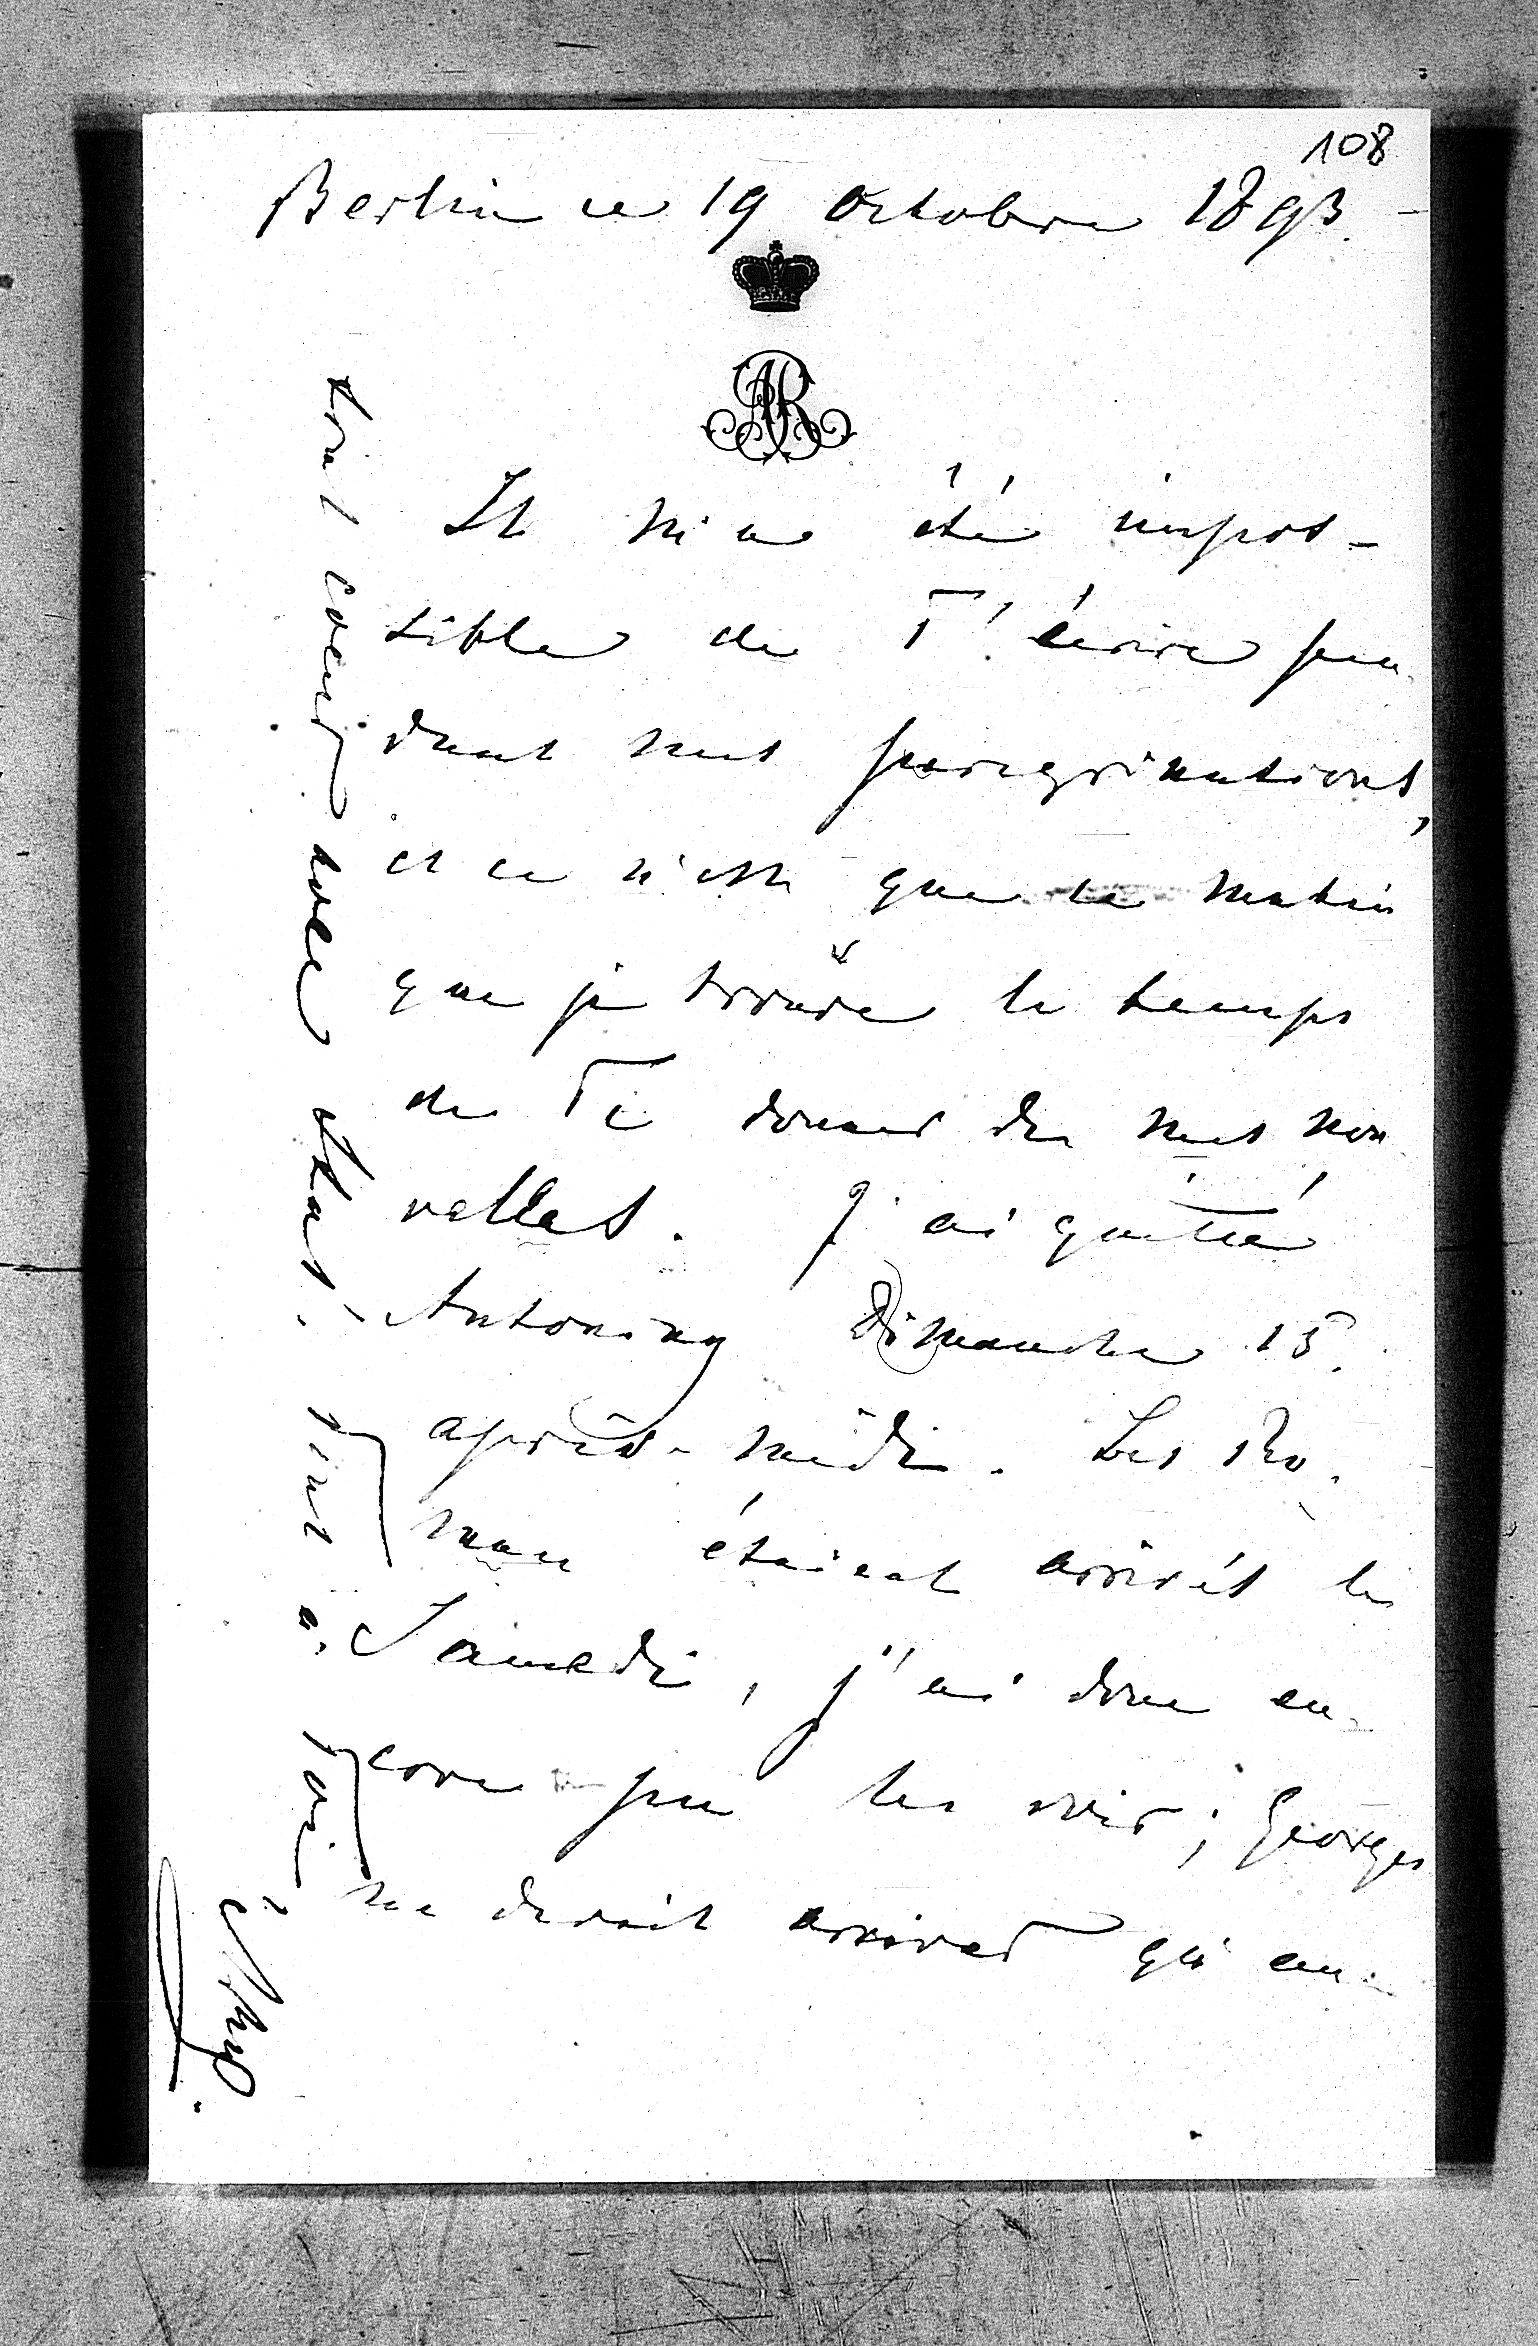 108
Berlin ce 19 Octobre 1893.
AR
Il m'a été impos-
sible de T'écrire pen
dant mes peregrinations,
et ce n'est que ce matin
que je trouve le temps
de Te donner de mes nou
velles. J'ai quitté
Antoniny Dimanche 15.
après-midi. Les Ro.
man étaient arrivés le
Samedi, j'ai donc en
core pu les voir; Georges
ne devait arriver qu'au
tout coeur
à Toi